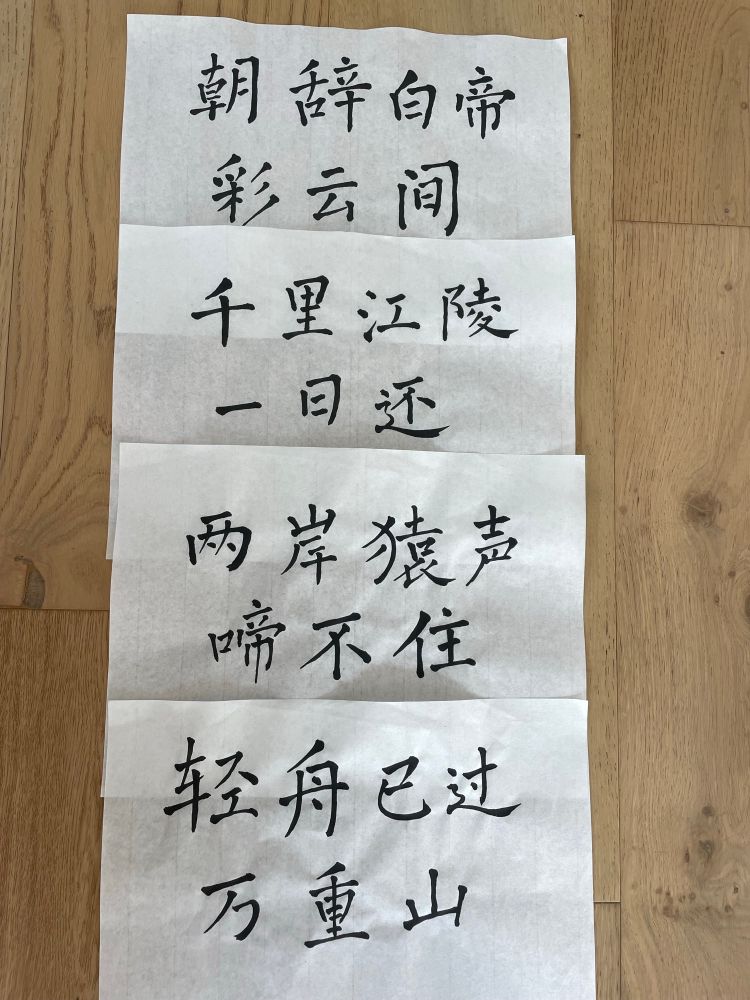 朝辞白帝
彩云间
千里江陵
一日还
两岸猿声
啼不住
轻舟已过
万重山